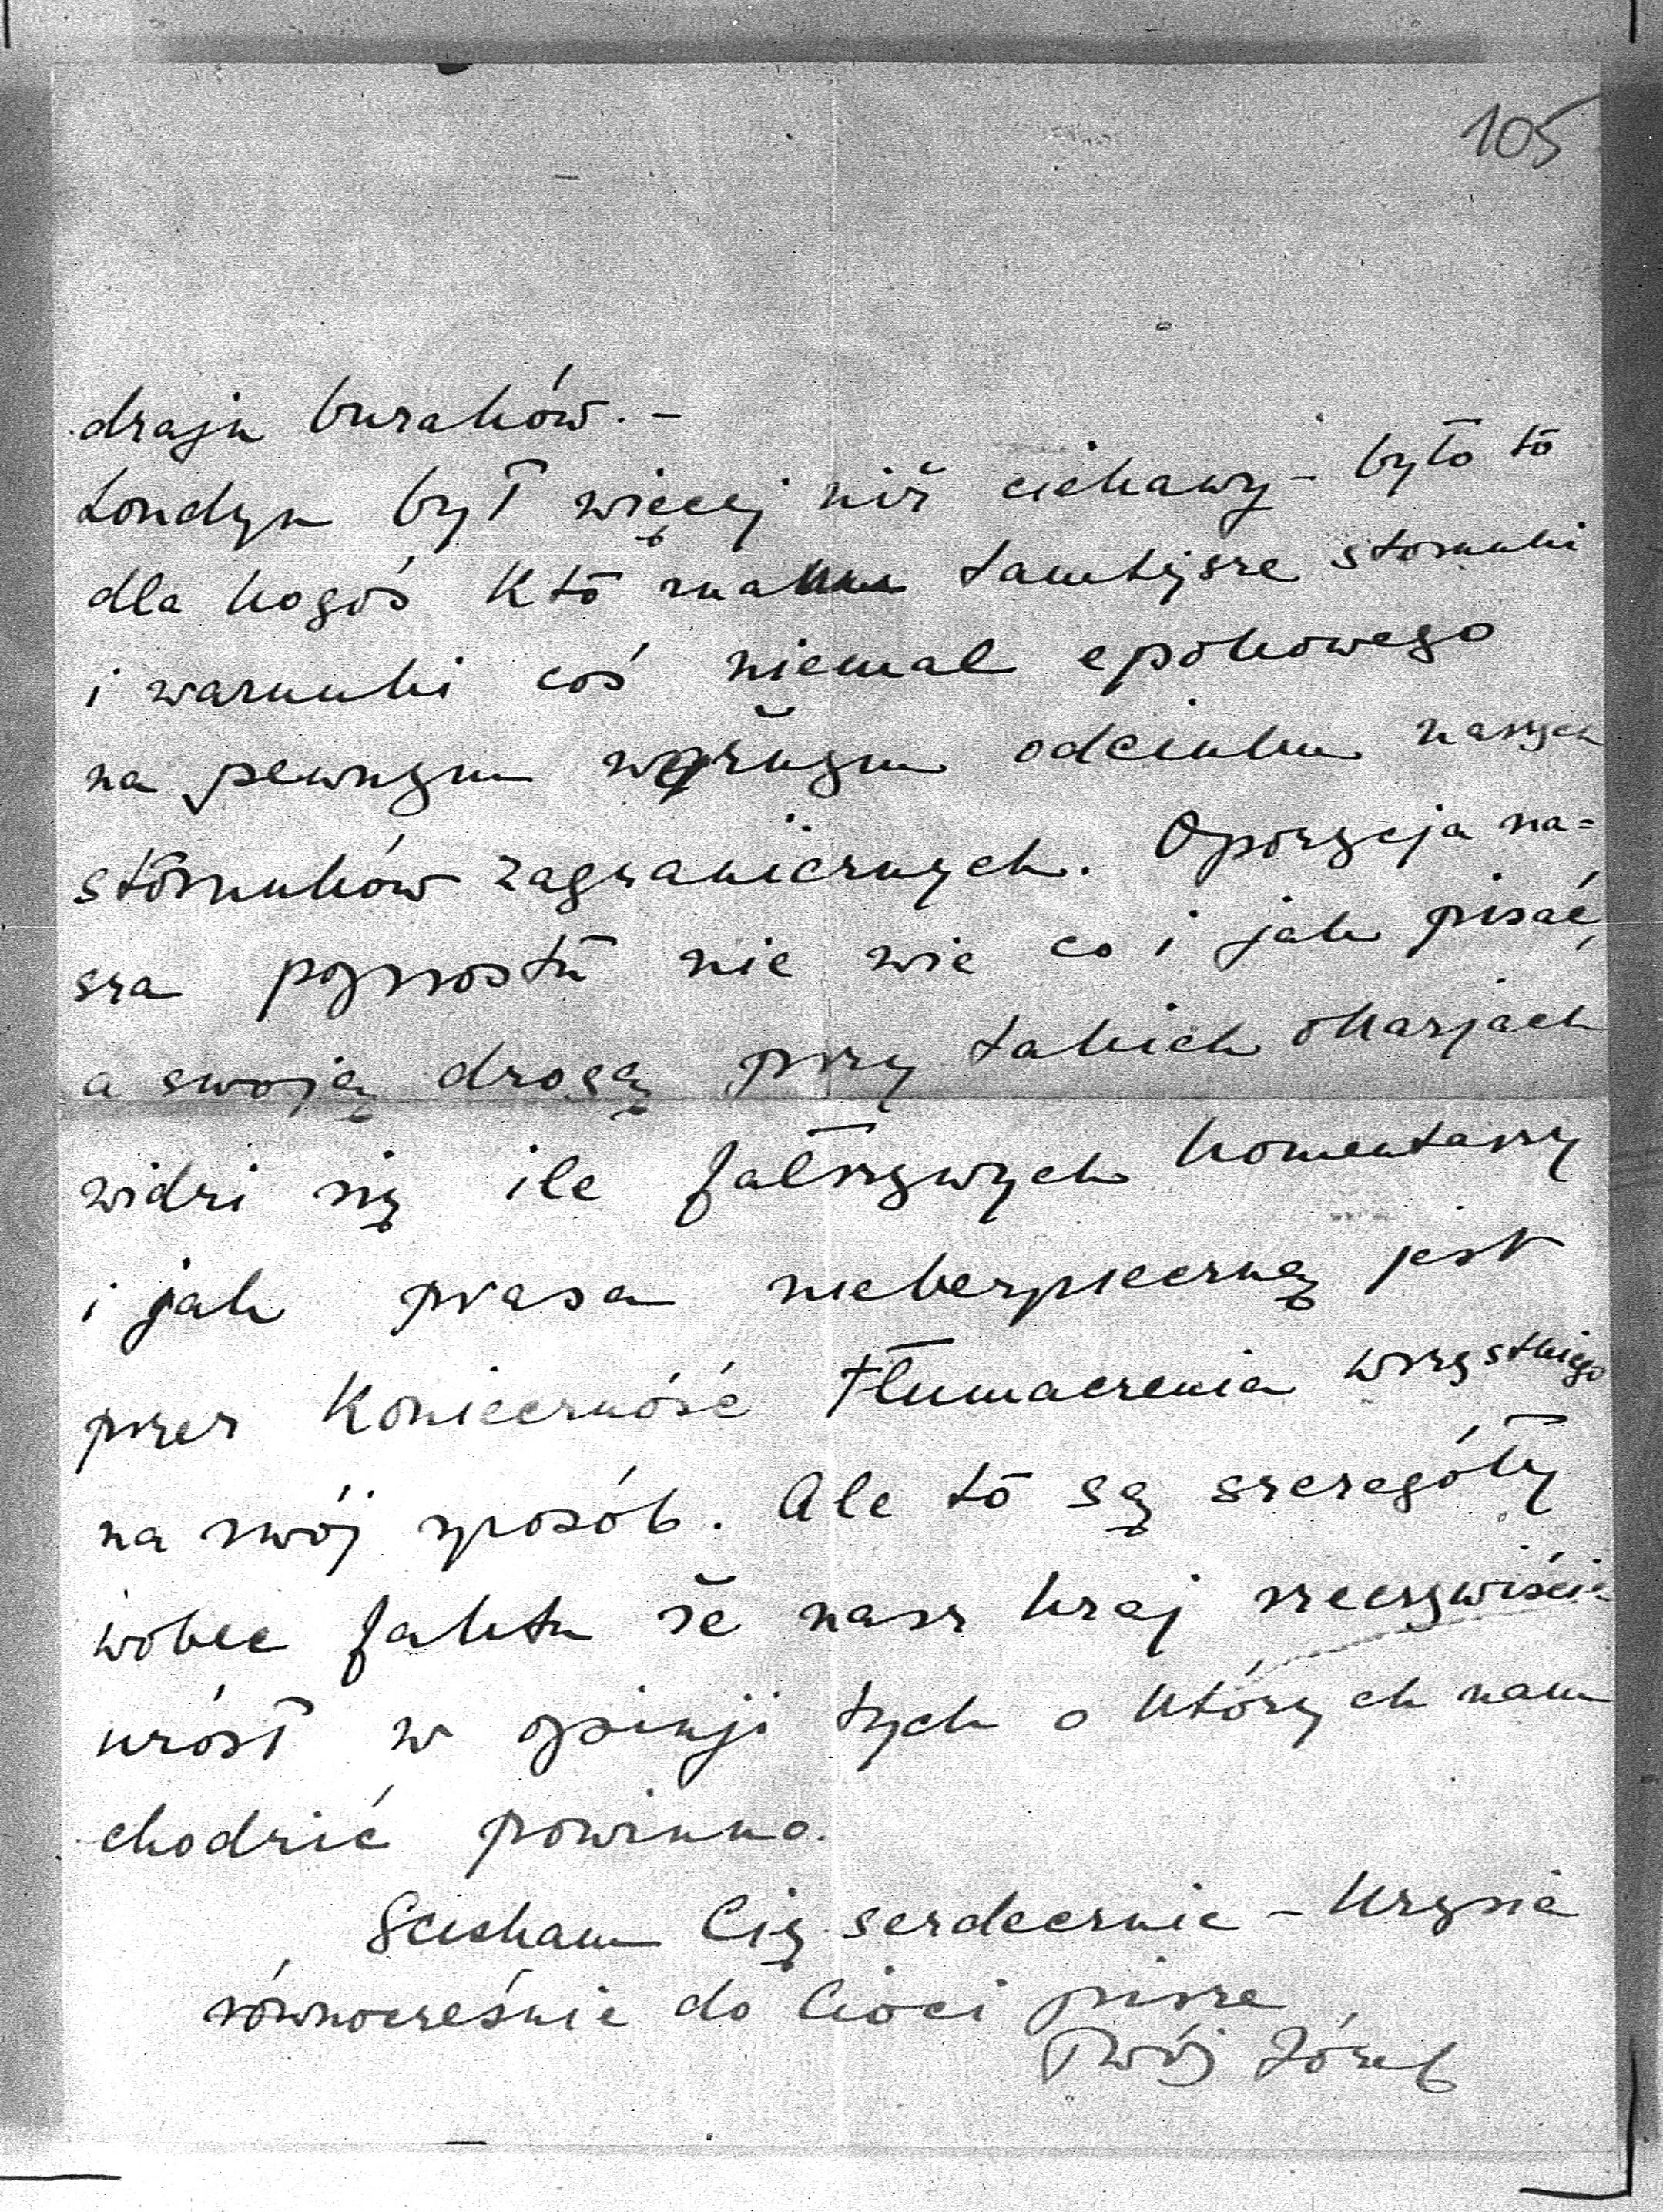 105
draju buraków. -
Londyn był więcej niż ciekawy - było to
dla kogoś kto zna tamtejsze stosunki
i warunki coś niemal epokowego
na pewnym ważnym odcinku naszych
stosunków zagranicznych. Opozycja na=
sza poprostu nie wie co i jak pisać,
a swoją drogą przy takich okazjach
widzi się ile fałszywych komentarzy
i jak prasa niebezpieczną jest
przez konieczność tłumaczenia wszystkiego
na swój sposób. Ale to są szczegóły
wobec faktu że nasz kraj rzeczywiście
urósł w opinji tych o których nam
chodzić powinno.
Ściskam Cię serdecznie - Krysia
równocześnie do Cioci pisze,
Twój Józef